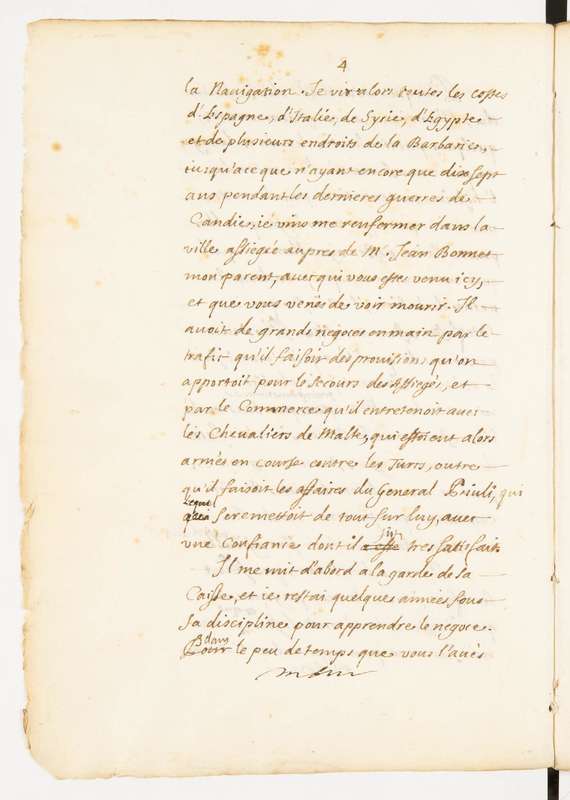 4
la Navigation. Je vis alors toutes les costes
d'Espagne, d'Italie, de Syrie, d'Egypte
et de plusieurs endroits de la Barbarie,
iusqu'a ce que n'ayant encore que dix sept
ans pendant les dernieres guerres de
Candie, ie vins me renfermer dans la
ville assiegée aupres de Mr. Jean Bonnet
mon parent, avec qui vous estes venu icy,
et que vous venés de voir mourir. Il
avoit de grands negoces en main par le
trafic qu'il faisoit des provisions qu'on
apportoit pour le secours des assiegés, et
par le Commerce qu'il entretenoit avec
les Chevaliers de Malte, qui estoient alors
armés en course contre les Turcs, outre
qu'il faisoit les affaires du General Priuli, qui
lequel
se remettoit de tout sur luy, avec
une confiance dont il fut tres satisfait.
Il me mit d'abord a la garde de sa
Caisse, et ie restai quelques années sous
sa discipline pour apprendre le negoce.
dans
Pour le peu de temps que vous l'avés